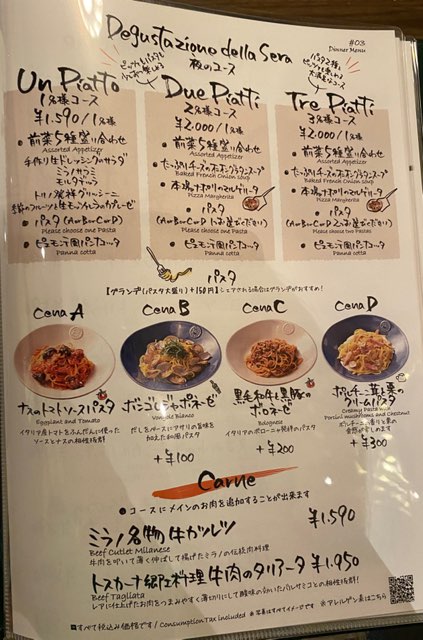 Degustazione della Sera
夜のコース
#03
Dinner Menu
Un Piatto
1名様コース
¥1.590/1名様
• 前菜5種盛り合わせ
Assorted Appetizer
手作り生ドレッシングのサラダ
ミラノサラミ
モルタデッラ
トリノ発祥グリッシーニ
• パスタ
(A or B or C or D)
Please choose one Pasta
• ピエモンテ風パンナコッタ
Panna cotta
Due Piatti
2名様コース
¥2.000/1名様
• 前菜5種盛り合わせ
Assorted Appetizer
• たっぷりチーズのオニオングラタンスープ
Baked French Onion soup
• 本場ナポリのマルゲリータ
Pizza Margherita
• パスタ
(A or B or C or D 1つお選びください)
Please choose one Pasta
• ピエモンテ風パンナコッタ
Panna cotta
Tre Piatti
3名様コース
¥2.000/1名様
• 前菜5種盛り合わせ
Assorted Appetizer
• たっぷりチーズのオニオングラタンスープ
Baked French Onion soup
• 本場ナポリのマルゲリータ
Pizza Margherita
• パスタ
(A or B or C or D 2つお選びください)
Please choose two Pastas
• ピエモンテ風パンナコッタ
Panna cotta
パスタ
【グランデ(パスタ大盛り)+150円】シェアされる場合はグランデがおすすめ!
Cena A
ナスのトマトソースパスタ
Eggplant and Tomato
イタリア産トマトをふんだんに使った
ソースとナスの相性抜群!
Cena B
ボンゴレジャポネーゼ
Vongole Bianco
だしをベースにアサリの旨味を
加えた和風パスタ
+¥100
Cena C
黒毛和牛と黒豚の
ボロネーゼ
Bolognese
イタリアのボローニャ発祥のパスタ
+¥200
Cena D
ポルチーニ茸と栗の
クリームパスタ
Creamy Pasta with
Porcini mushrooms and Chestnut
ポルチーニの香りと栗の
+¥300
Carne
• コースにメインのお肉を追加することが出来ます
ミラノ名物 牛カツレツ ¥1.590
Beef Cutlet Milanese
牛肉を叩いて薄く伸ばして揚げたミラノの伝統肉料理
トスカーナ郷土料理 牛肉のタリアータ ¥1.950
Beef Tagliata
レアに仕上げたお肉をつまみやすく薄切りにして酸味の効いたバルサミコとの相性抜群!
すべて税込み価格です / Consumption Tax included ※写真はすべてイメージです ※アレルゲン表はこちら